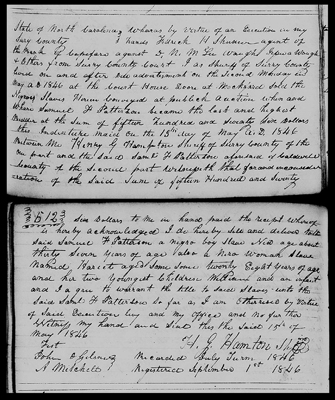 State of North Carolina, Whereas by Virtue of an Execution in my
hands Fedrick H Shuman agent of
the Bank of Cape fear against
& Other from Surry County Court I as Sheriff of Surry County
have on and after due advertisement on the Second Monday in
May A.D. 1846 at the Court House Door at Rockford Sold the
Negroes Slaves Named Conveyed at publick Auction when and
Where Samuel F Patterson became the last and highest
Bidder at the Sum of fifteen Hundred and Seventy Six Dollars
this Indenture made on the 15th day of May A.D. 1846
Between Me Henry G Hampton Sheriff of Surry County of the
One part and the Said Saml F Patterson aforesaid of Caldwell
County of the Second part Witnesseth that for and in consider
eration of the Said Sum of fifteen Hundred and Seventy
612 Six Dollars to Me in hand paid the receipt whereof
is hereby acknowledged I do hereby Sell and deliver to the
said Samuel F Patterson a negro boy Slave Ned age about
thirty Seven years of age also a Negro Woman Slave
Named Hariett aged Some Twenty Eight years of age
and her two Youngest Children William and an infant
and I agree to warrant the title to Said Slaves unto the
Said Saml F Patterson so far as I am Otherised by Virtue
of Said Execution levy and my office and no further
Witness my hand and Seal this the Said 15th of
May 1846
H. G. Hamton Shff
Test
John Recorded July Term 1846
A Mitchell Registered September 1st 1846